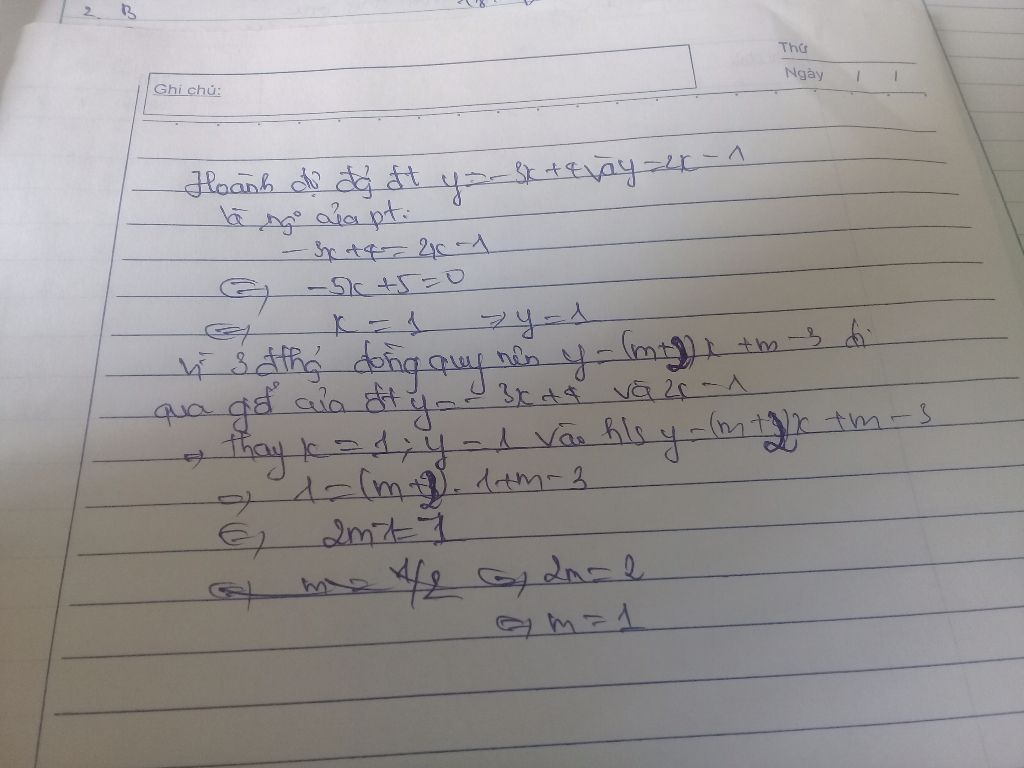 2. B
Thứ
Ngày / /
Ghi chú:
Hoành độ đ' đt y = -3x+4 và y=2x-1
là ng° của pt:
-3x+4=2x-1
⇔ -5x+5=0
⇔ x=1 ⇒ y=1
Vì 3 đthg' đồng quy nên y=(m+2)x+m-3 đi
qua gđ của đt y=-3x+4 và 2x-1
⇒ thay x=1; y=1 vào h/s y=(m+2)x+m-3
⇒ 1=(m+2).1+m-3
⇔ 2m-1=1
⇔ m = 1/2 ⇔ 2m=2
⇔ m=1